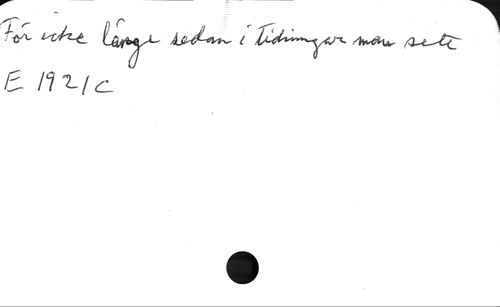 För icke länge sedan i tidningar man sett
E 1921C